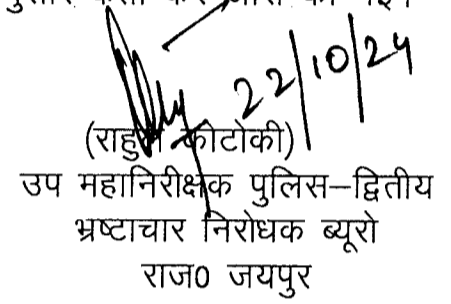 22/10/24
(राहुल कोटोकी)
उप महानिरीक्षक पुलिस–द्वितीय
भ्रष्टाचार निरोधक ब्यूरो
राज0 जयपुर